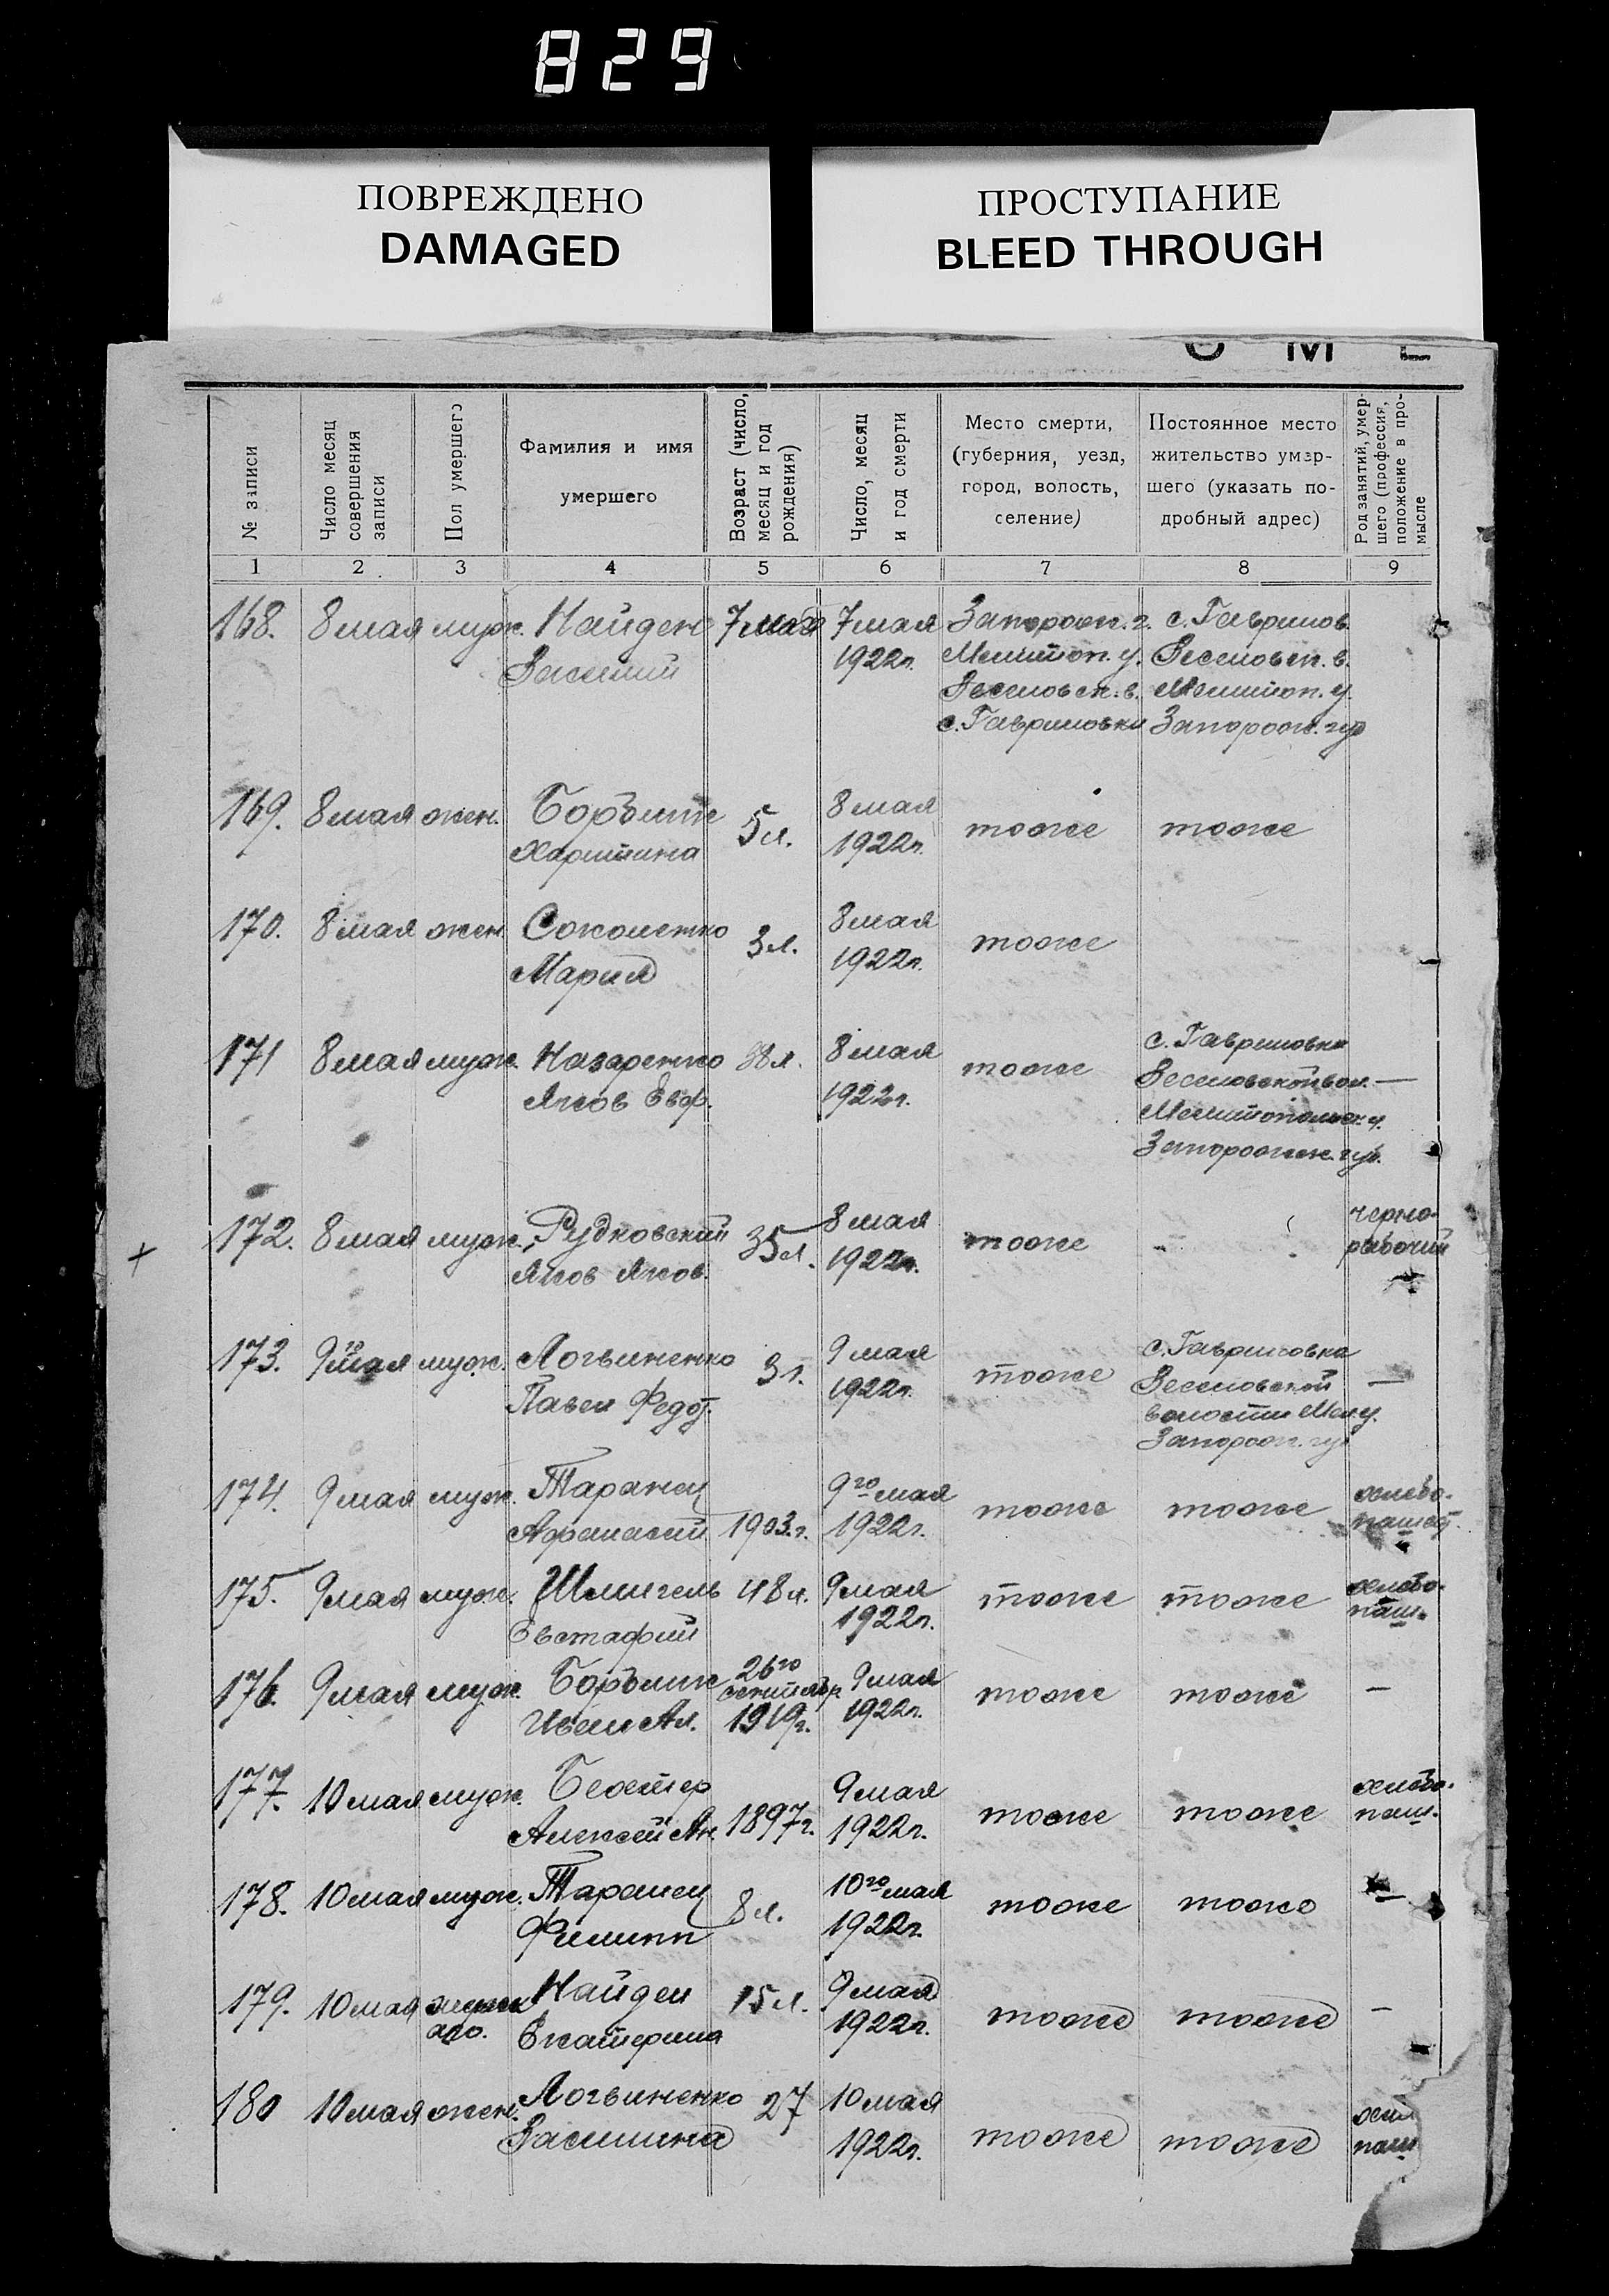 829
ПОВРЕЖДЕНО
DAMAGED
ПРОСТУПАНИЕ
BLEED THROUGH
№ записи
Число месяц
совершения
записи
Пол умершего
Фамилия и имя
умершего
Возраст (число,
месяц и год
рождения)
Число, месяц
и год смерти
Место смерти,
(губерния, уезд,
город, волость,
селение)
Постоянное место
жительство умер-
шего (указать по-
дробный адрес)
Род занятий, умер-
шего (профессия,
положение в про-
мысле
1 2 3 4 5 6 7 8 9
168. 8 мая муж. Найден 7 мая 7 мая Запорож. г. с. Гаврилов.
Василий 1922 г. Мелитоп. у. Веселовск. в.
Веселовск. в. Мелитоп. у.
с. Гавриловки Запорож. гу
169. 8 мая жен. 5 л. 8 мая тоже тоже
Харитина 1922 г.
170. 8 мая жен. Соколенко 3 л. 8 мая тоже
Мария 1922 г.
171 8 мая муж. Назаренко 38 л. 8 мая тоже с. Гавриловка
Яков Евф. 1922 г. Веселовской вол. —
Мелитопольск. у.
Запорожск. гу.
172. 8 мая муж. Рудковский 35 л. 8 мая тоже черно-
Яков Яков. 1922 г. рабочий
173. 9го мая муж. Логвиненко 3 г. 9 мая тоже с. Гавриловка
Павел Федот. 1922 г. Веселовской —
волости Мел. у.
Запорож. гу
174. 9 мая муж. Таранец 1903 г. 9го мая тоже тоже хлебо-
Афанасий 1922 г. пашец
175. 9 мая муж. Шмигель 48 л. 9 мая тоже тоже хлебо-
Евстафий 1922 г. паш.
176. 9 мая муж. 26го 9 мая тоже тоже —
Иван Ал. сентябр 1922 г.
1919 г.
177. 10 мая муж. Бехтер 1897 г. 9 мая тоже тоже хлебо-
Алексей Ан. 1922 г. паш.
178. 10 мая муж. Таранец 8 л. 10го мая тоже тоже —
Филипп 1922 г.
179. 10 мая Найден 15 л. 9 мая тоже тоже —
Екатерина 1922 г.
180 10 мая жен. Логвиненко 27 10 мая тоже тоже
Василина 1922 г. паш